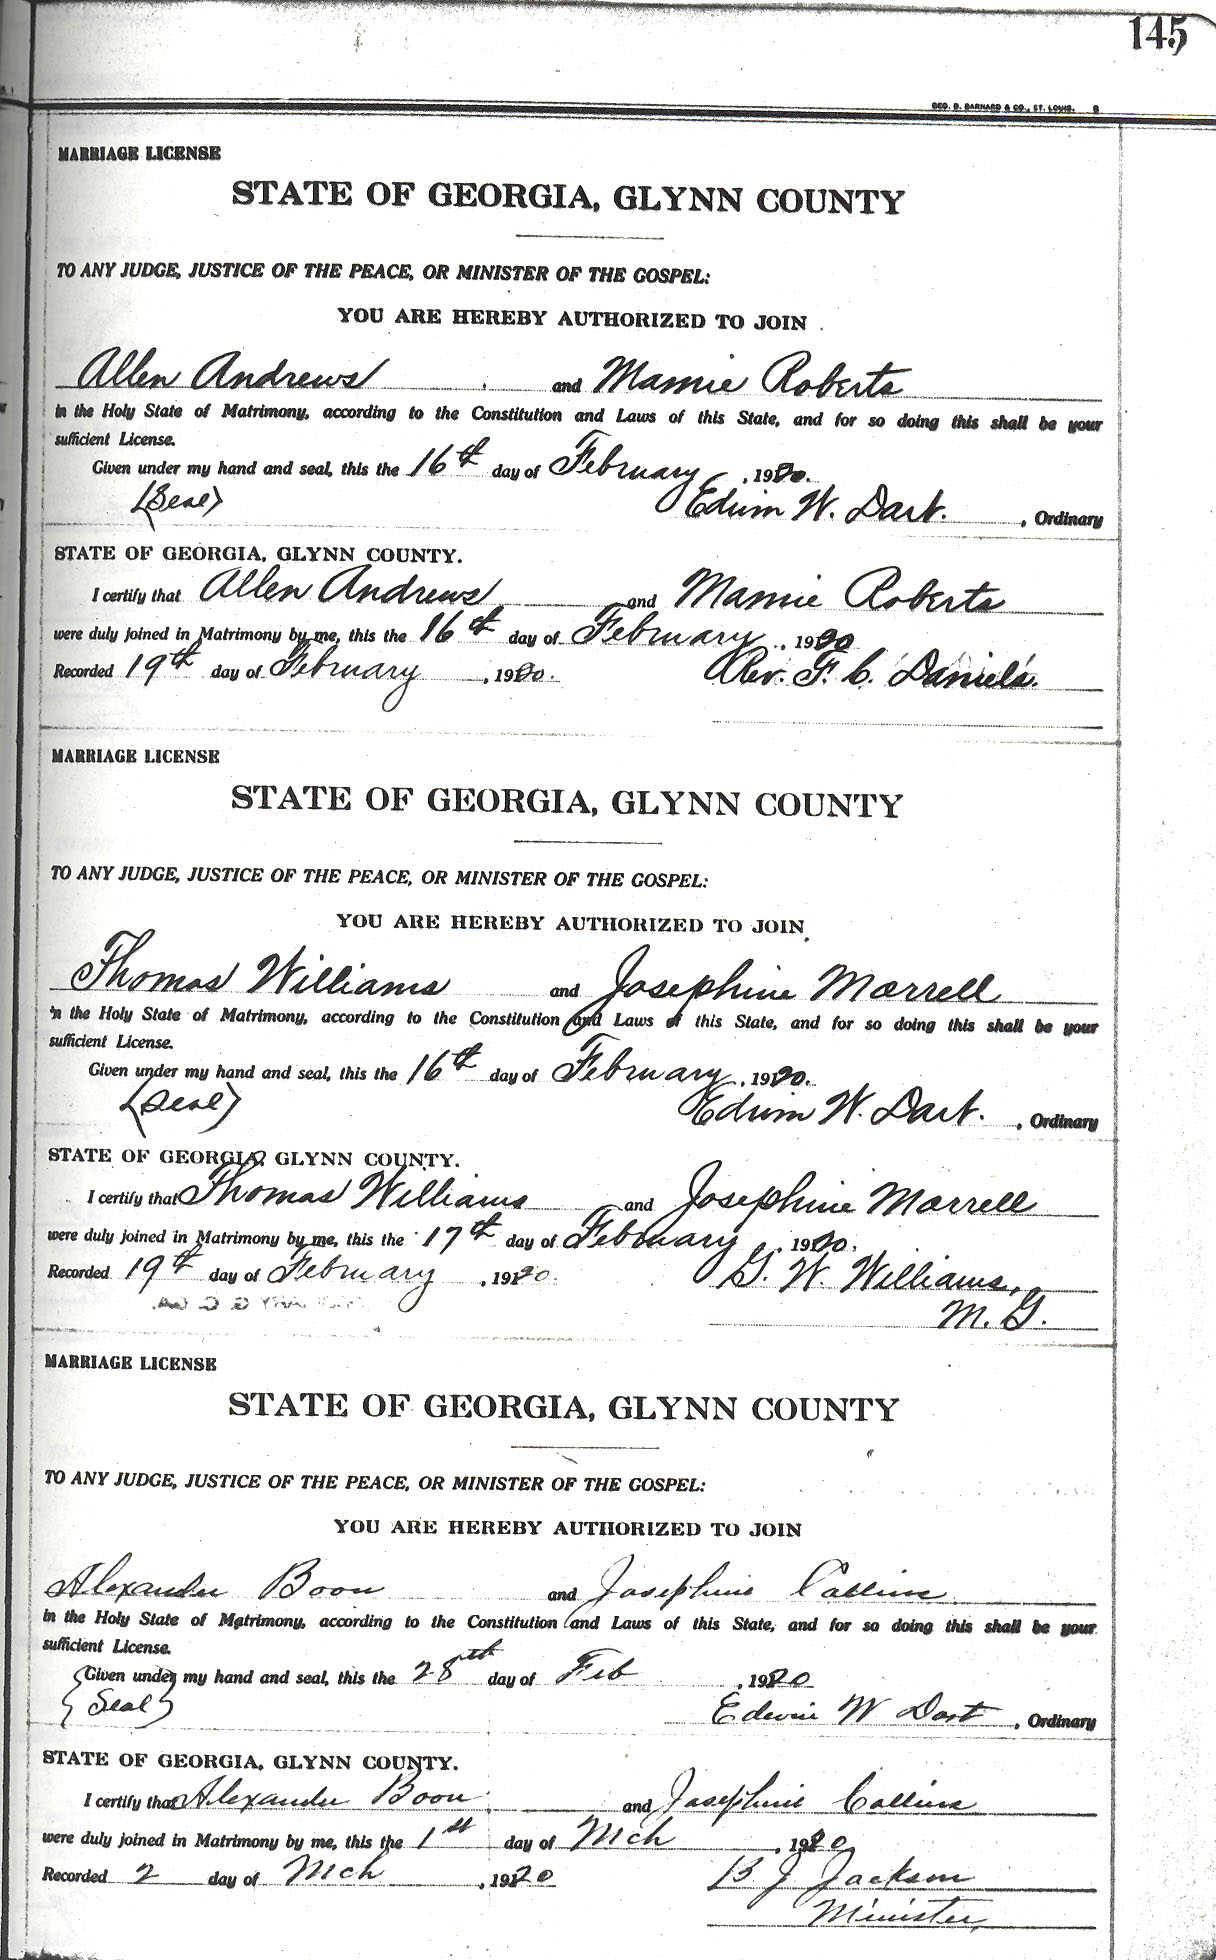 145
GEO. D. BARNARD & CO., ST. LOUIS.
MARRIAGE LICENSE
STATE OF GEORGIA, GLYNN COUNTY
TO ANY JUDGE, JUSTICE OF THE PEACE, OR MINISTER OF THE GOSPEL:
YOU ARE HEREBY AUTHORIZED TO JOIN
Allen Andrews and Mamie Roberts
in the Holy State of Matrimony, according to the Constitution and Laws of this State, and for so doing this shall be your
sufficient License.
Given under my hand and seal, this the 16th day of February, 1920.
(Seal) Edwin W. Dart. , Ordinary
STATE OF GEORGIA, GLYNN COUNTY.
I certify that Allen Andrews and Mamie Roberts
were duly joined in Matrimony by me, this the 16th day of February, 1920
Recorded 19th day of February, 1920. Rev. F. C. Daniels.
MARRIAGE LICENSE
STATE OF GEORGIA, GLYNN COUNTY
TO ANY JUDGE, JUSTICE OF THE PEACE, OR MINISTER OF THE GOSPEL:
YOU ARE HEREBY AUTHORIZED TO JOIN
Thomas Williams and Josephine Morrell
in the Holy State of Matrimony, according to the Constitution and Laws of this State, and for so doing this shall be your
sufficient License.
Given under my hand and seal, this the 16th day of February, 1920.
(Seal) Edwin W. Dart. , Ordinary
STATE OF GEORGIA, GLYNN COUNTY.
I certify that Thomas Williams and Josephine Morrell
were duly joined in Matrimony by me, this the 17th day of February, 1920.
Recorded 19th day of February, 1920. G. W. Williams,
M. G.
MARRIAGE LICENSE
STATE OF GEORGIA, GLYNN COUNTY
TO ANY JUDGE, JUSTICE OF THE PEACE, OR MINISTER OF THE GOSPEL:
YOU ARE HEREBY AUTHORIZED TO JOIN
Alexander Boon and Josephine Collins
in the Holy State of Matrimony, according to the Constitution and Laws of this State, and for so doing this shall be your
sufficient License.
Given under my hand and seal, this the 28th day of Feb, 1920
(Seal) Edwin W Dart , Ordinary
STATE OF GEORGIA, GLYNN COUNTY.
I certify that Alexander Boon and Josephine Collins
were duly joined in Matrimony by me, this the 1st day of Mch, 1920
Recorded 2 day of Mch, 1920 B J Jackson
Minister,